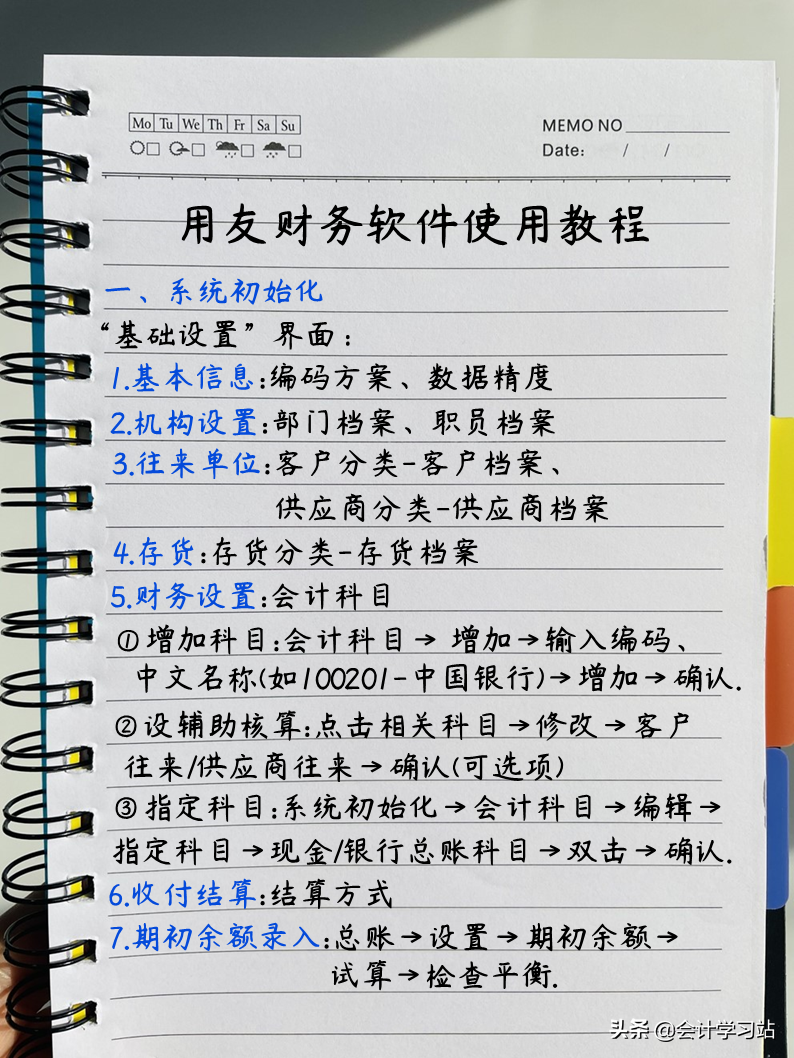 Mo Tu We Th Fr Sa Su
MEMO NO
Date: / /
用友财务软件使用教程
一、系统初始化
“基础设置”界面:
1.基本信息:编码方案、数据精度
2.机构设置:部门档案、职员档案
3.往来单位:客户分类-客户档案、
供应商分类-供应商档案
4.存货:存货分类-存货档案
5.财务设置:会计科目
①增加科目:会计科目→增加→输入编码、
中文名称(如100201-中国银行)→增加→确认.
②设辅助核算:点击相关科目→修改→客户
往来/供应商往来→确认(可选项)
③指定科目:系统初始化→会计科目→编辑→
指定科目→现金/银行总账科目→双击→确认.
6.收付结算:结算方式
7.期初余额录入:总账→设置→期初余额→
试算→检查平衡.
头条 @会计学习站